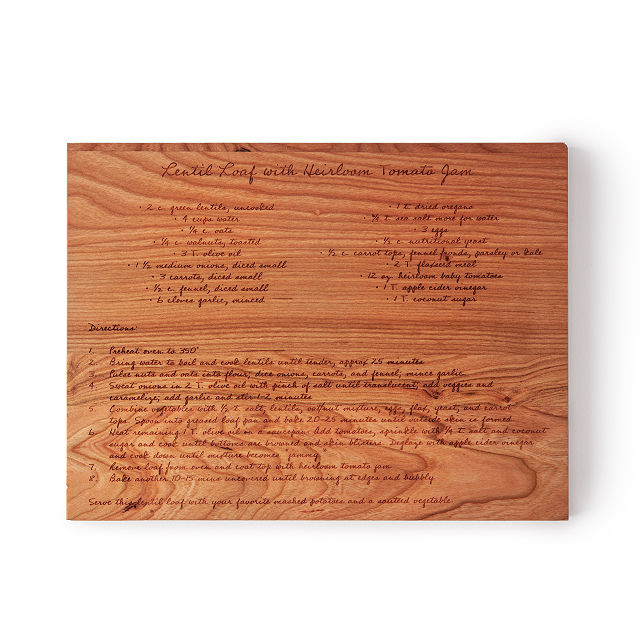 Lentil Loaf with Heirloom Tomato Jam
· 2 c. green lentils, uncooked
· 4 cups water
· ¼ c. oats
· ¼ c. walnuts, toasted
· 3 T. olive oil
· 1 ½ medium onions, diced small
· 3 carrots, diced small
· ½ c. fennel, diced small
· 6 cloves garlic, minced
· 1 t. dried oregano
t. sea salt more for water
· 3 eggs
· ½ c. nutritional yeast
· ½ c. carrot tops, fennel fronds, parsley or kale
· 2 T. flaxseed meal
12 oz. heirloom baby tomatoes
· 1 T. apple cider vinegar
· 1 T. coconut sugar
Directions:
1. Preheat oven to 350°
2. Bring water to boil and cook lentils until tender, approx 25 minutes
3. Pulse nuts and oats into flour; dice onions, carrots, and fennel; mince garlic.
4. Sweat onions in 2 T. olive oil with pinch of salt until translucent; add veggies and
caramelize; add garlic and stir 1-2 minutes
5. Combine vegetables with ½ t. salt, lentils, oat/nut mixture, eggs, flax, yeast, and carrot
tops. Spoon into greased loaf pan and bake 20-25 minutes until outside skin is formed
6. Heat remaining 1 T. olive oil in a saucepan. Add tomatoes, sprinkle with ¼ t. salt and coconut
sugar and cook until bottoms are browned and skin blisters. Deglaze with apple cider vinegar
and cook down until mixture becomes jammy
7. Remove loaf from oven and coat top with heirloom tomato jam
8. Bake another 10-15 mins uncovered until browning at edges and bubbly
Serve this lentil loaf with your favorite mashed potatoes and a sauteed vegetable